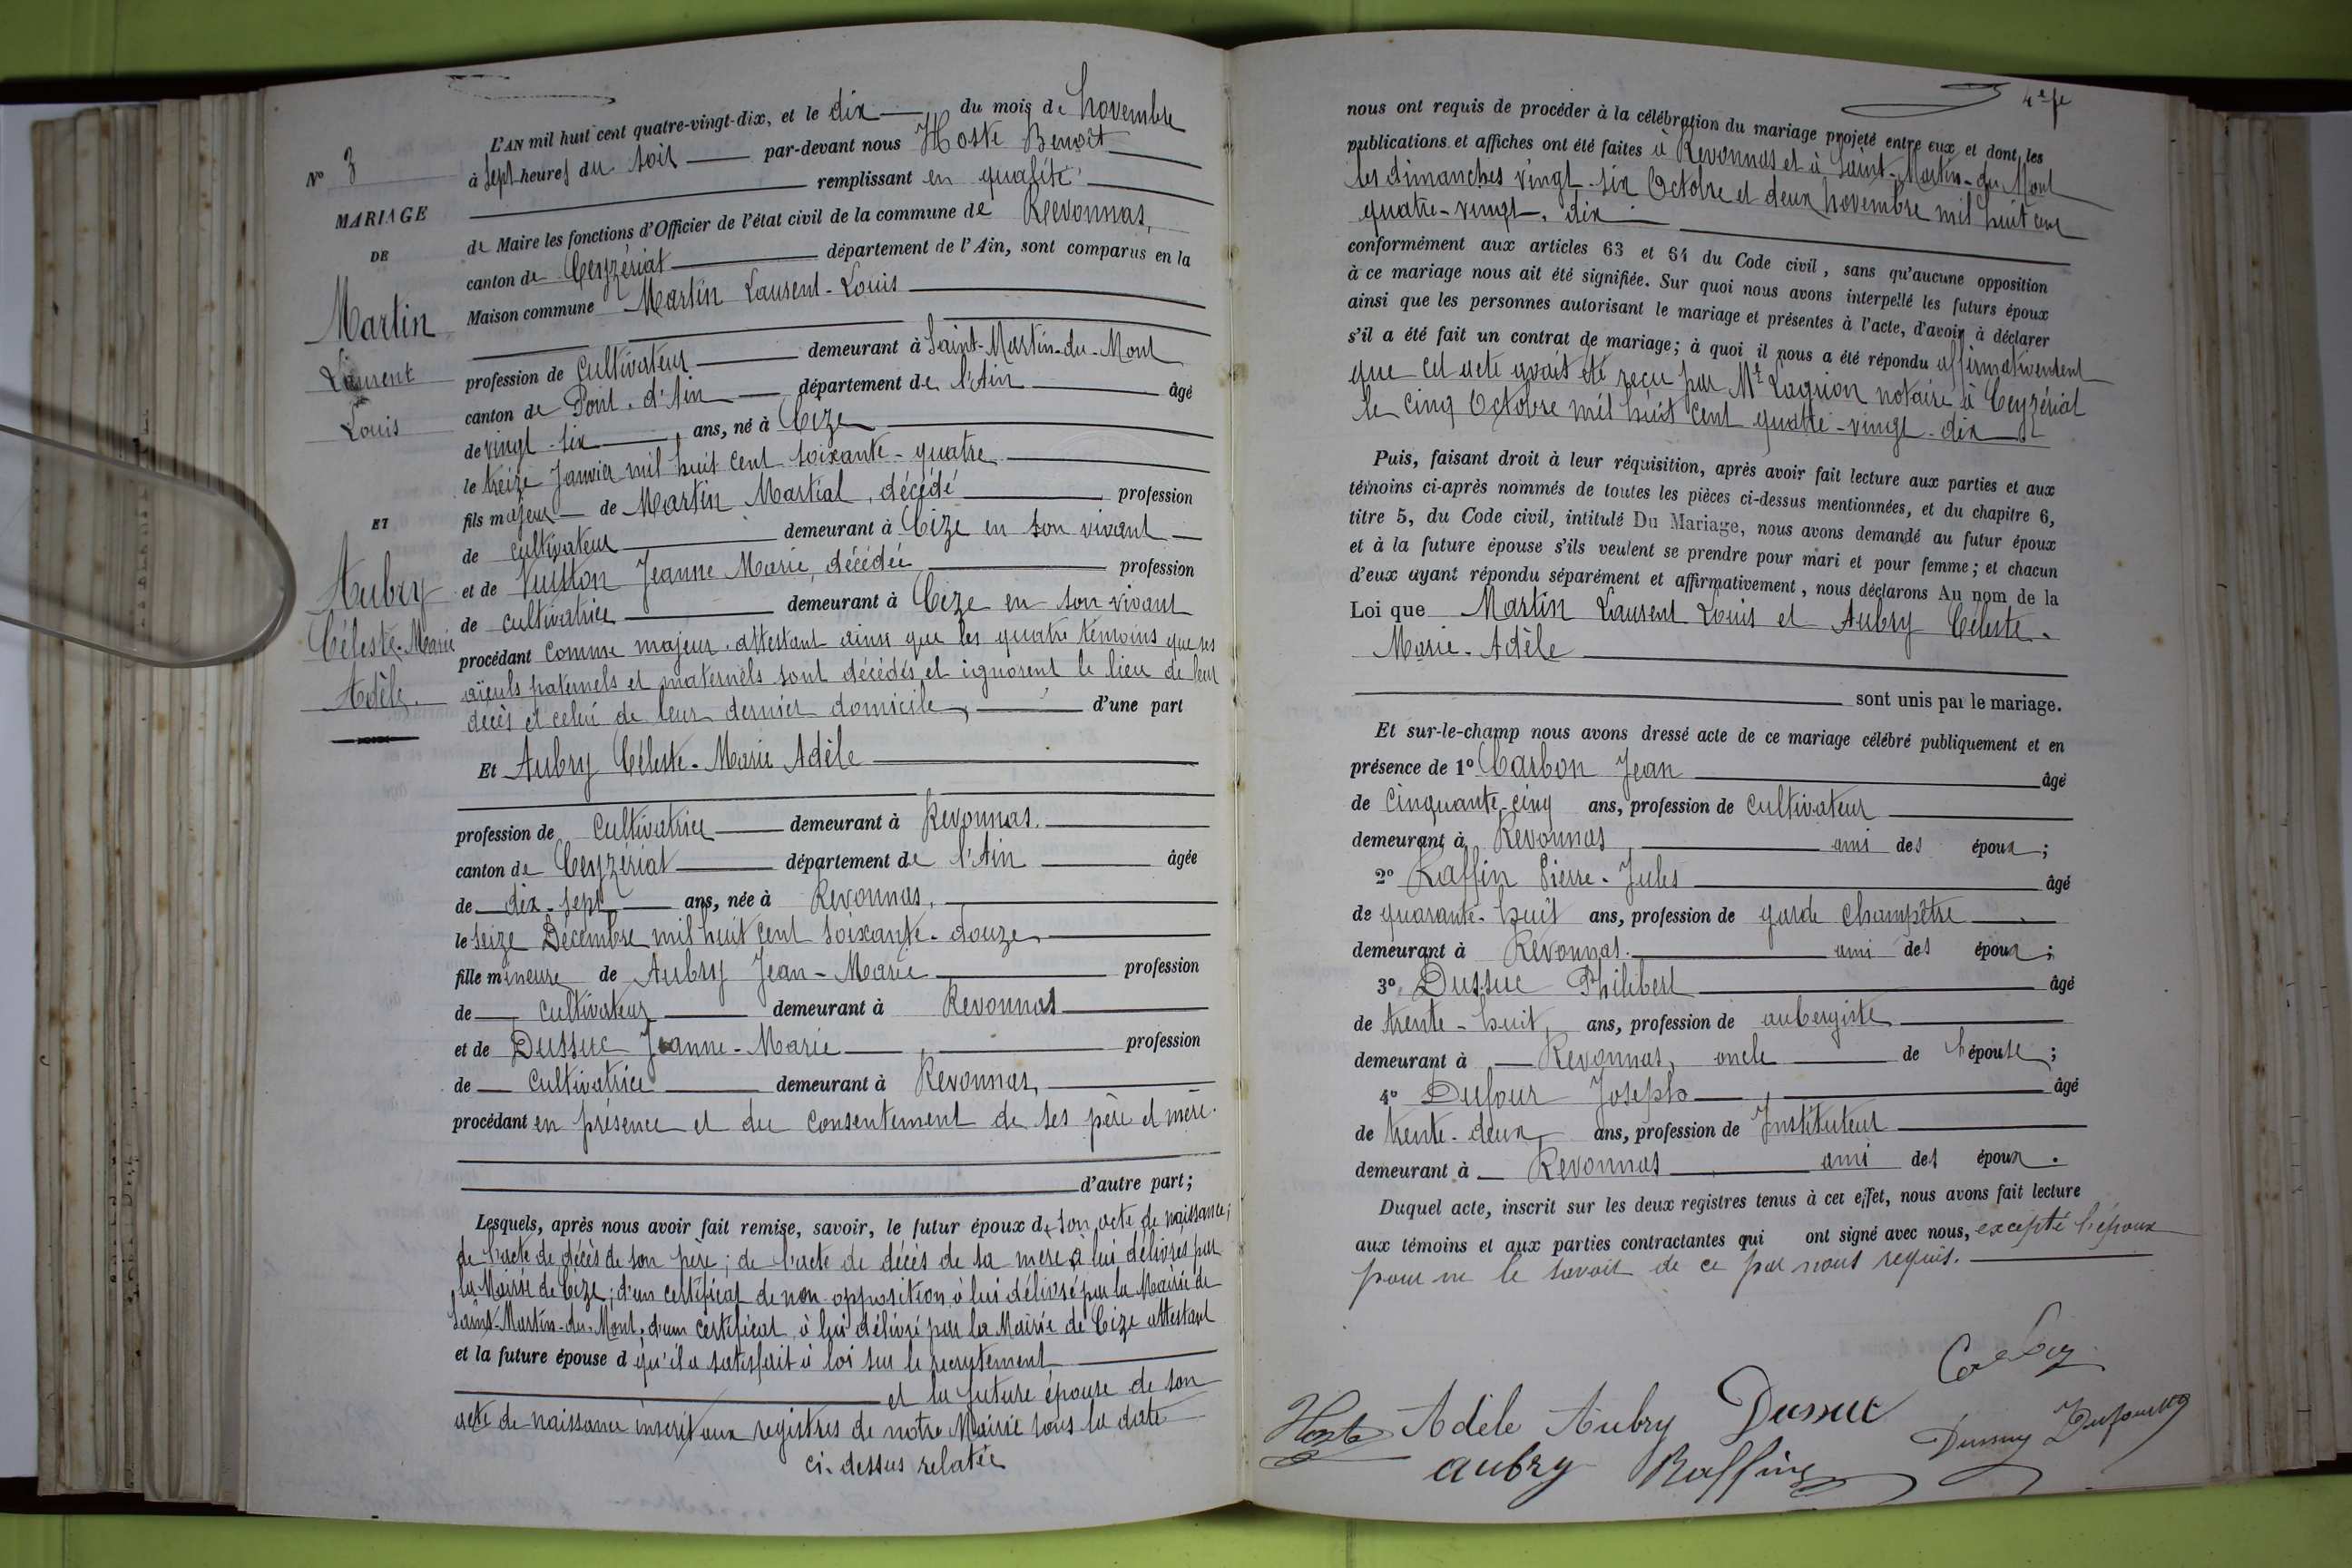 L'AN mil huit cent quatre-vingt-dix, et le dix du mois de Novembre
à sept heures du soir par-devant nous Hoste Benoît
remplissant en qualité
de Maire les fonctions d'Officier de l'état civil de la commune de Revonnas,
canton de Ceyzériat département de l'Ain, sont comparus en la
Maison commune Martin Laurent-Louis
profession de cultivateur demeurant à Saint-Martin-du-Mont
canton de Pont-d'Ain département de l'Ain âgé
de vingt-six ans, né à Cize
le treize Janvier mil huit cent soixante-quatre
fils majeur de Martin Martial, décédé profession
de cultivateur demeurant à Cize en son vivant
et de Vuitton Jeanne Marie, décédée profession
de cultivatrice demeurant à Cize en son vivant
procédant comme majeur attestant ainsi que les quatre témoins que ses
aïeuls paternels et maternels sont décédés et ignorent le lieu de leur
décès et celui de leur dernier domicile, d'une part
Et Aubry Céleste-Marie Adèle
profession de cultivatrice demeurant à Revonnas.
canton de Ceyzériat département de l'Ain âgée
de dix-sept ans, née à Revonnas,
le seize Décembre mil huit cent soixante-douze
fille mineure de Aubry Jean-Marie profession
de cultivateur demeurant à Revonnas
et de Dussuc Jeanne-Marie profession
de cultivatrice demeurant à Revonnas,
procédant en présence et du consentement de ses père et mère.
d'autre part;
Lesquels, après nous avoir fait remise, savoir, le futur époux de son acte de naissance;
de l'acte de décès de son père; de l'acte de décès de sa mère à lui délivrés par
la Mairie de Cize; d'un certificat de non-opposition à lui délivré par la Mairie de
Saint-Martin-du-Mont, d'un certificat à lui délivré par la Mairie de Cize attestant
et la future épouse d qu'il a satisfait à loi sur le recrutement
et la future épouse de son
acte de naissance inscrit aux registres de notre Mairie sous la date
ci-dessus relatée
N° 3
MARIAGE
DE
Martin
Laurent
Louis
ET
Aubry
Céleste-Marie
Adèle.
nous ont requis de procéder à la célébration du mariage projeté entre eux, et dont les
publications et affiches ont été faites à Revonnas et à Saint-Martin-du-Mont
les dimanches vingt-six Octobre et deux Novembre mil huit cent
quatre-vingt-dix
conformément aux articles 63 et 64 du Code civil, sans qu'aucune opposition
à ce mariage nous ait été signifiée. Sur quoi nous avons interpellé les futurs époux
ainsi que les personnes autorisant le mariage et présentes à l'acte, d'avoir à déclarer
s'il a été fait un contrat de mariage; à quoi il nous a été répondu affirmativement
que cet acte avait été reçu par Mt Lagrion notaire à Ceyzériat
le cinq Octobre mil huit cent quatre-vingt-dix
Puis, faisant droit à leur réquisition, après avoir fait lecture aux parties et aux
témoins ci-après nommés de toutes les pièces ci-dessus mentionnées, et du chapitre 6,
titre 5, du Code civil, intitulé Du Mariage, nous avons demandé au futur époux
et à la future épouse s'ils veulent se prendre pour mari et pour femme; et chacun
d'eux ayant répondu séparément et affirmativement, nous déclarons Au nom de la
Loi que Martin Laurent Louis et Aubry Céleste-
Marie-Adèle
sont unis par le mariage.
Et sur-le-champ nous avons dressé acte de ce mariage célébré publiquement et en
présence de 1° Carbon Jean âgé
de cinquante-cinq ans, profession de cultivateur
demeurant à Revonnas ami des époux;
2° Raffin Pierre-Jules âgé
de quarante-huit ans, profession de garde champêtre
demeurant à Revonnas. ami des époux;
3° Dussuc Philibert âgé
de trente-huit ans, profession de aubergiste
demeurant à Revonnas, oncle de l'épouse;
4° Dufour Joseph âgé
de trente-deux ans, profession de Instituteur
demeurant à Revonnas ami des époux.
Duquel acte, inscrit sur les deux registres tenus à cet effet, nous avons fait lecture
aux témoins et aux parties contractantes qui ont signé avec nous, excepté l'époux
pour ne le savoir de ce par nous requis.
Hoste Adèle Aubry Dussuc
aubry Raffin